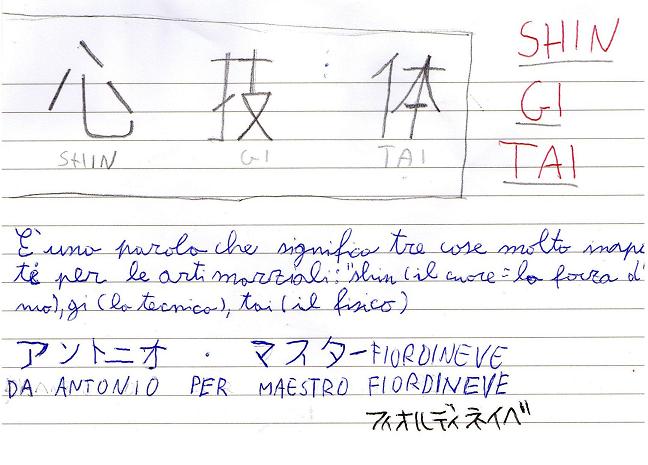 心 技 体
SHIN GI TAI
SHIN
GI
TAI
È una parola che significa tre cose molto
per le arti marziali: "shin (il cuore = la forza d'
mo), gi (la tecnica), tai (il fisico)
アントニオ ・ マスターFIORDINEVE
DA ANTONIO PER MAESTRO FIORDINEVE
フィオルディネイベ